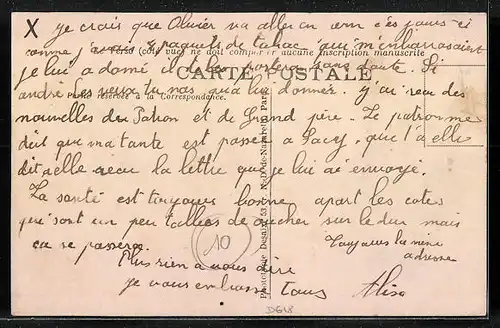 X
je crois que Olivier va aller en ces jours-ci
comme j'avais 2 paquets de tabac qui m'embarrasaient
Le côté (côté vue) ne doit comporter aucune inscription manuscrite
je lui ai donné il le portera sans doute. Si
CARTE POSTALE
andré les veux tu nas qu'a lui donner. j'ai recu des
Partie réservée à la Correspondance.
nouvelles du Pahon et de Grand père. Le patron me
dit que ma tante est passée a Sacy, que t'a elle
dit a elle recu la lettre que je lui ai envoyé.
La santé est toujours bonne apart les cotes
qui sont un peu tallées de coucher sur le dur mais
ca se passera.
10
Toujours la meme
adresse
Plus rien a vous dire
je vous embrasse tous
Phototypie Desaix, 53, Rue N.-D. de Nazareth, Paris
D618